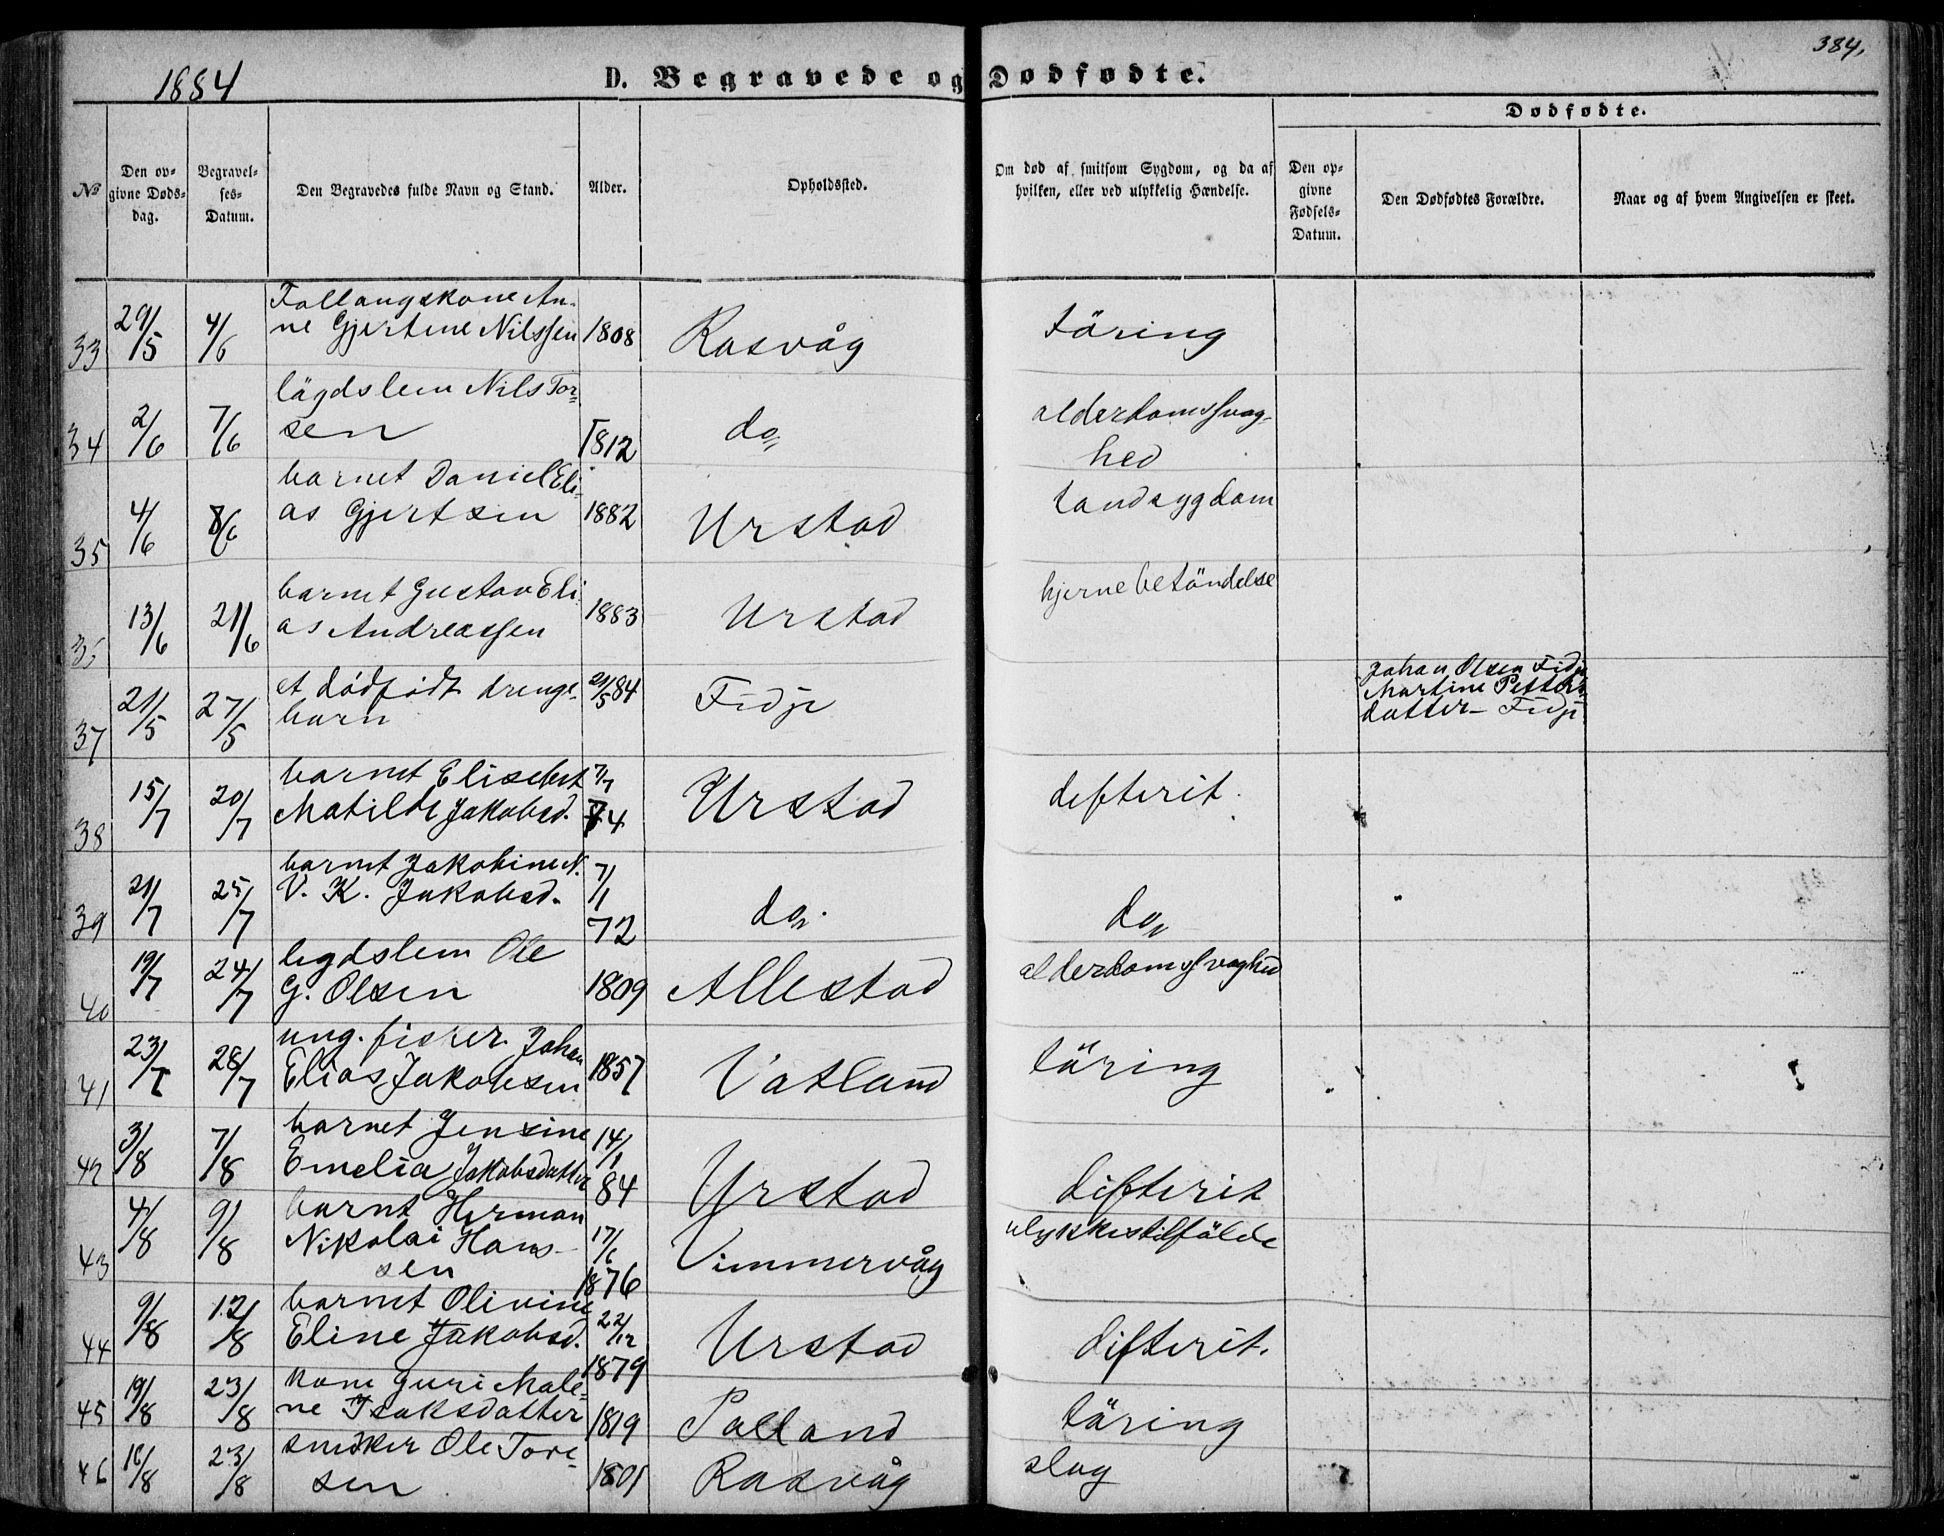 1884
D. Begravede og Dødfødte.
384.
No
Den opgivne Dødsdag.
Begravelses-Datum.
Den Begravedes fulde Navn og Stand.
Alder.
Opholdssted.
Om død af smitsom Sygdom, og da af hvilken, eller ved ulykkelig Hændelse.
Dødfødte.
Den opgivne Fødsels-Datum.
Den Dødfødtes Forældre.
Naar og af hvem Angivelsen er skeet.
33 29/5 4/6 An-
ne Gjertine Nilssen 1808 Rasvåg täring
34 2/6 7/6 lägdslem Nils Tor-
sen 1812 do, alderdomssvag-
hed
35 4/6 8/6 barnet Daniel Eli-
as Gjertsen 1882 Urstad tandsygdom
36 13/6 21/6 barnet Gustav Eli-
as Andreassen 1883 Urstad hjernebetöndelse
37 21/5 27/5 et dödfödt drenge-
barn 21/5 84 Fidje
Johan Olsen Fidje
Martine Petters-
datter - Fidje
38 15/7 20/7 barnet Elisebert
Matilde Jakobsd. 7/7 74 Urstad defterit.
39 21/7 25/7 barnet Jakobine N.
V. K. Jakobsd. 7/1 72 do. do,
40 19/7 24/7 legdslem Ole
G. Olsen 1809 Allestad alderdomssvaghed
41 23/7 28/7 ung. fisker Johan
Elias Jakobsen 1857 Vatland täring
42 3/8 7/8 barnet Jensine
Emelia Jakobsdatter 14/1 84 Urstad difterit
43 4/8 9/8 barnt Herman
Nikolai Han-
sen 17/6 1876 Vimmervåg ulykkestilfälde
44 9/8 12/8 barnet Olivine
Eline Jakobsd. 22/12 1879 Urstad difterit.
45 19/8 23/8 kone Guri Male-
ne Isaksdatter 1819 Salland täring
46 16/8 23/8 snekker Ole Tore-
sen 1801 Rasvåg slag